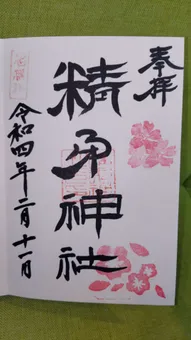 奉拝
精矛神社
令和四年二月十一日